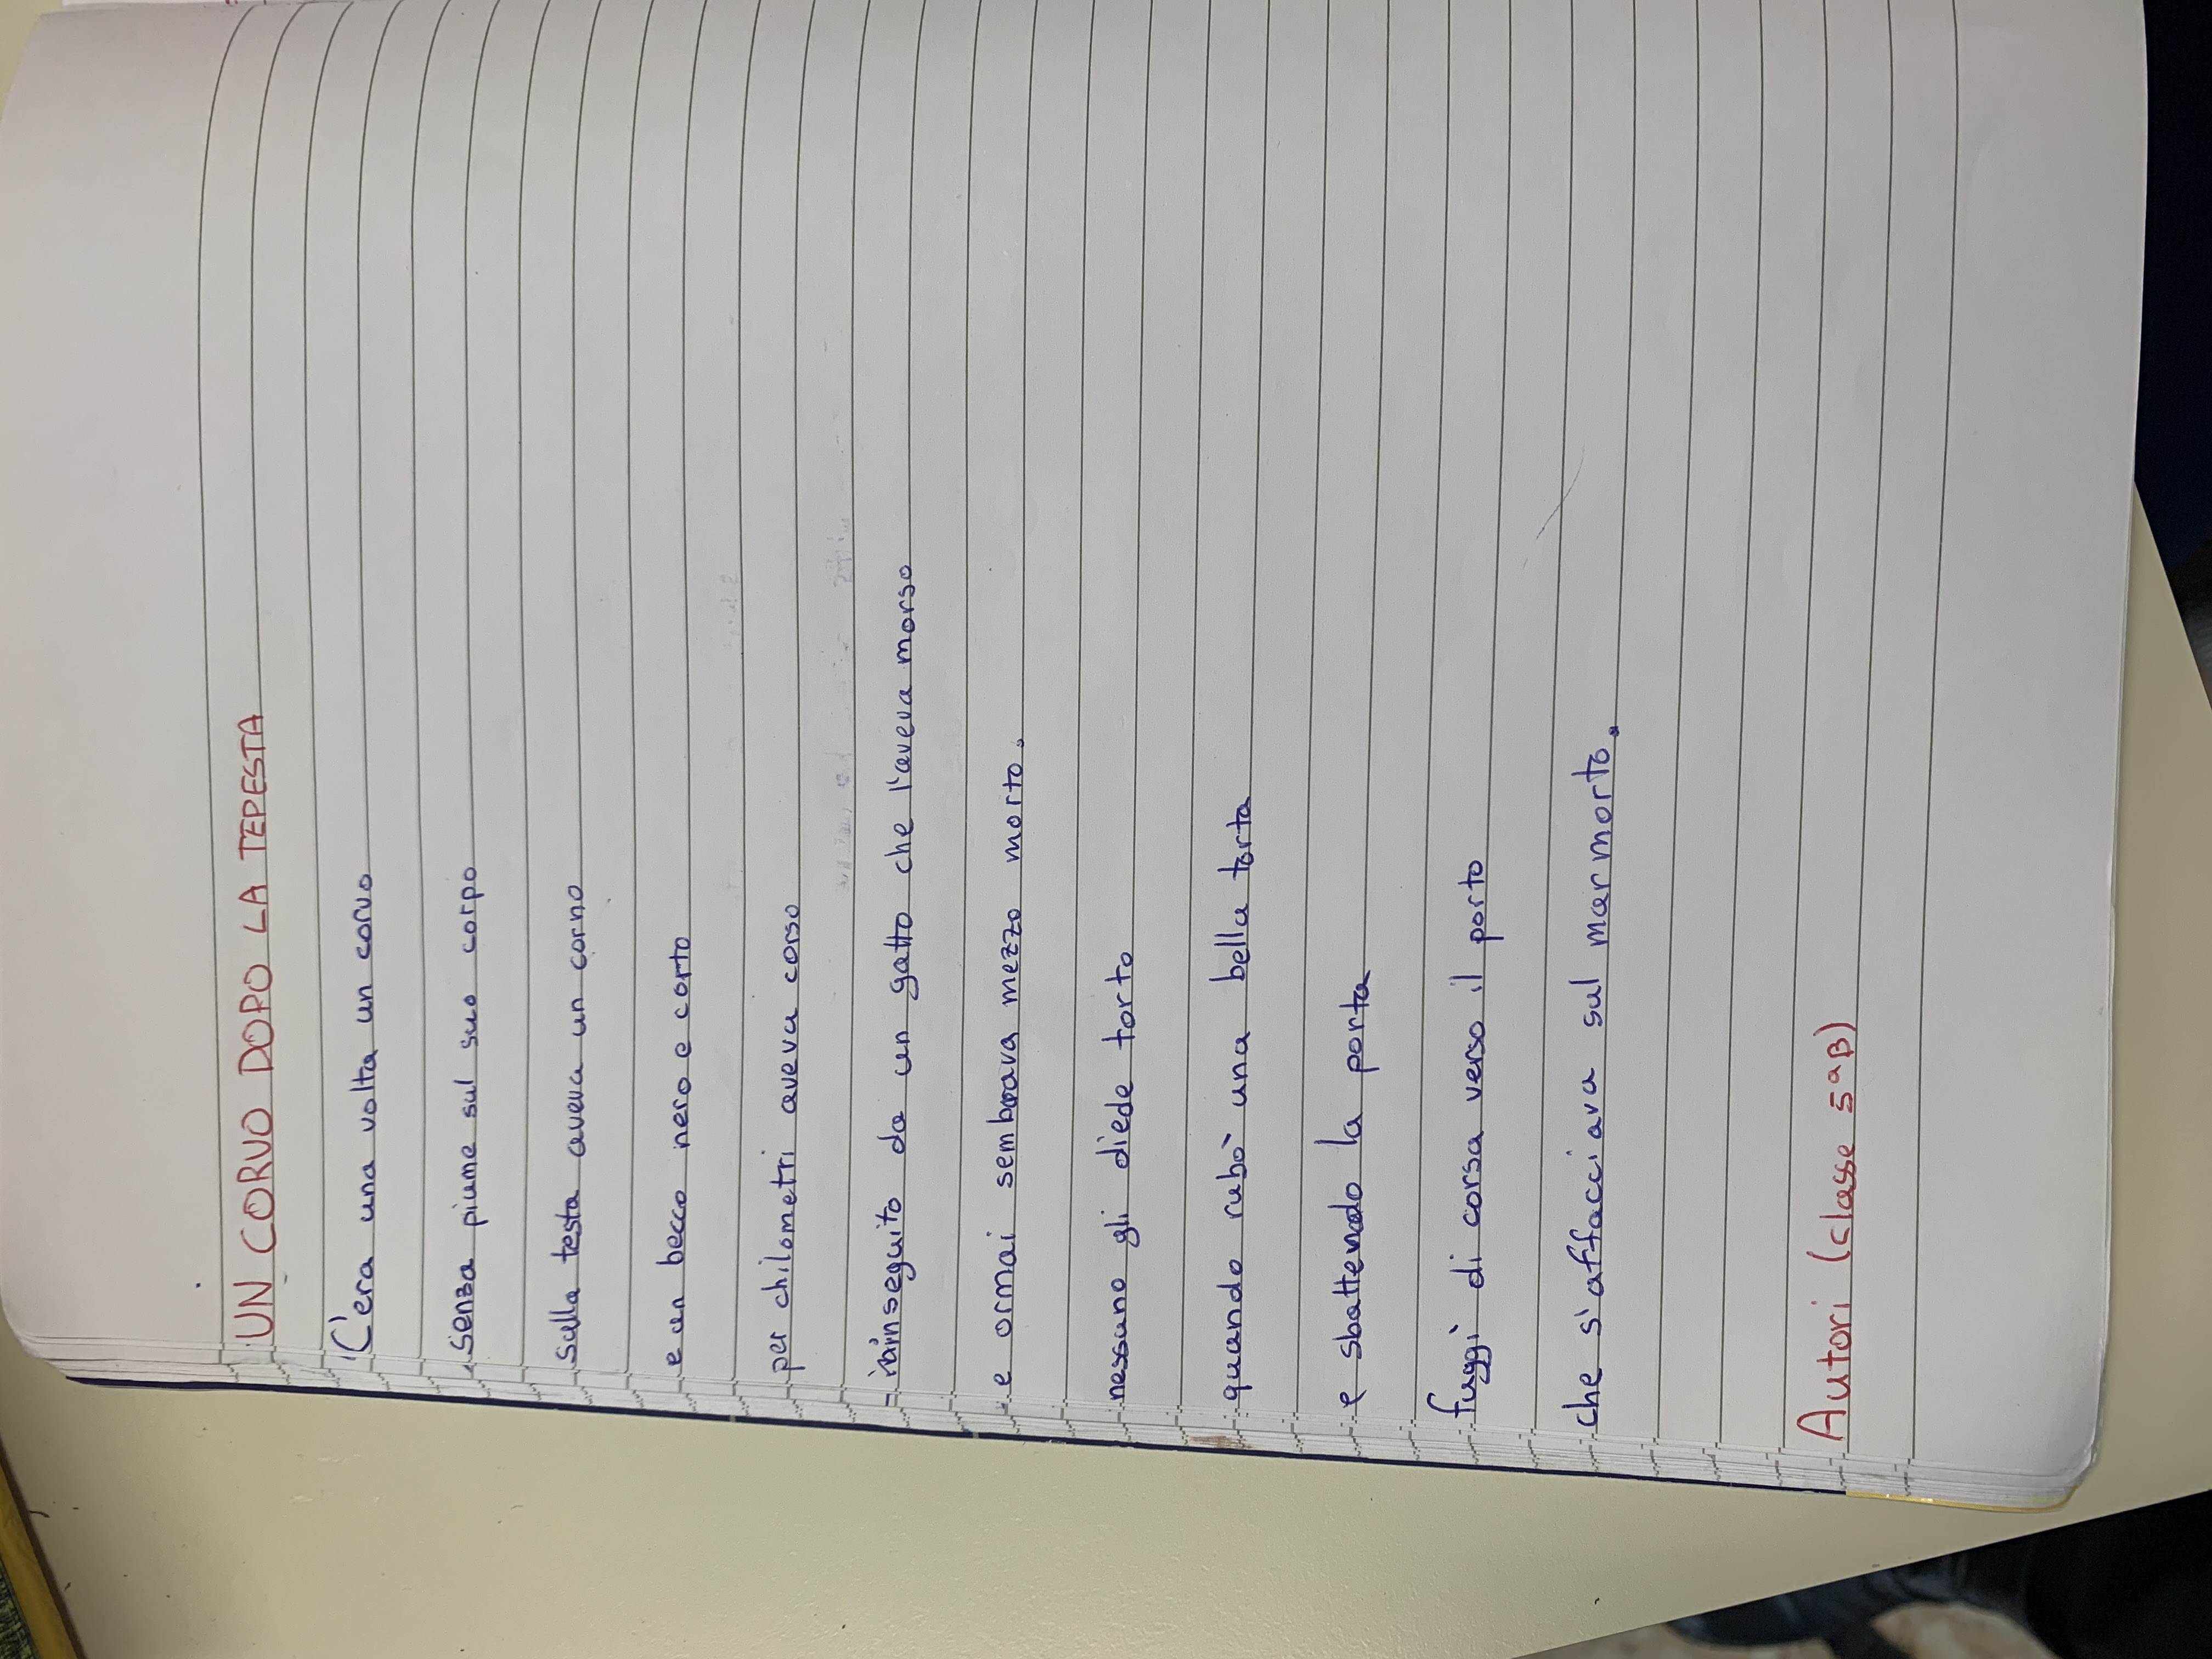 UN CORVO DOPO LA TEPESTA
C'era una volta un corvo
senza piume sul suo corpo
sulla testa aveva un corno
e un becco nero e corto
per chilometri aveva corso
rinseguito da un gatto che l'aveva morso
e ormai sembrava mezzo morto.
nessuno gli diede torto
quando rubò una bella torta
e sbattendo la porta
fuggì di corsa verso il porto
che s'affacciava sul mar morto.
Autori (classe 5ªB)